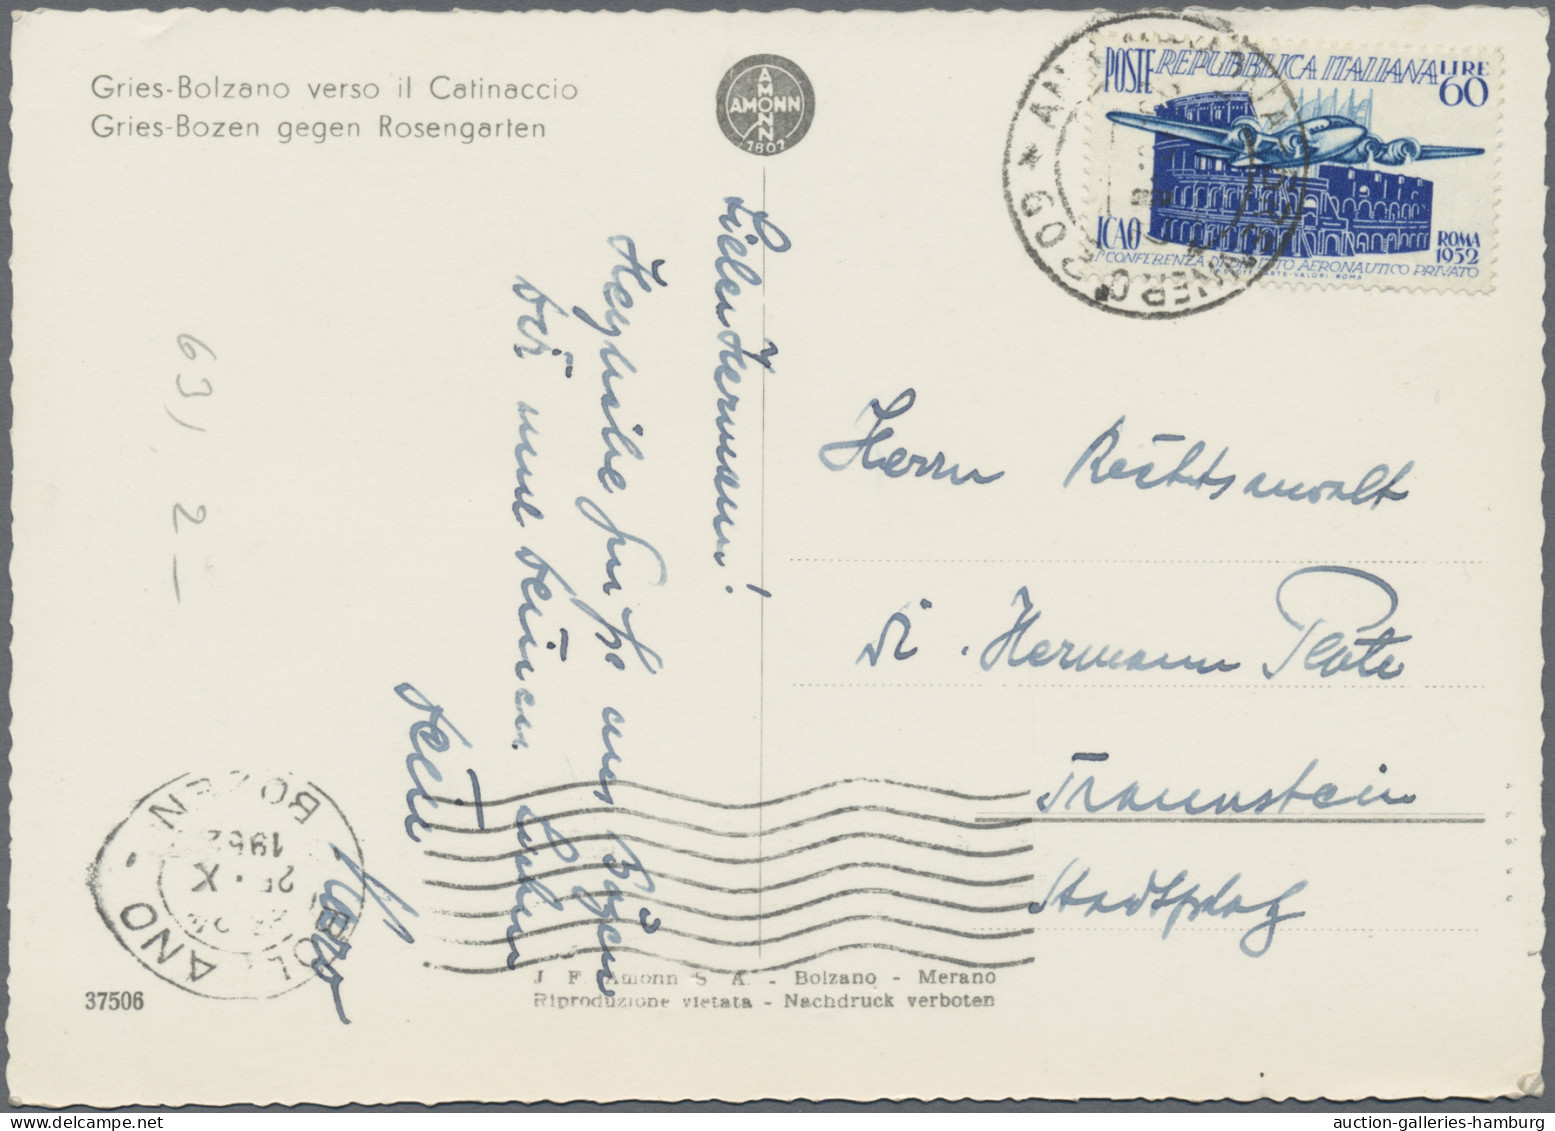 Gries-Bolzano verso il Catinaccio
Gries-Bozen gegen Rosengarten
AMONN
AMONN
1802
POSTE REPUBBLICA ITALIANA LIRE
60
ICAO
ROMA
1952
1ª CONFERENZA DI DIRITTO AERONAUTICO PRIVATO
209 *
Lieber Hermann!
Herzliche Grüße aus Bozen
Dir und Deinen Lieben
Dein
Herrn Rechtsanwalt
Dr. Hermann Plote
Traunstein
Stadtplatz
63/
2 —
BOLZANO - BOZEN
X
1952
J. F. Amonn S. A. - Bolzano - Merano
Riproduzione vietata - Nachdruck verboten
37506
auction-galleries-hamburg